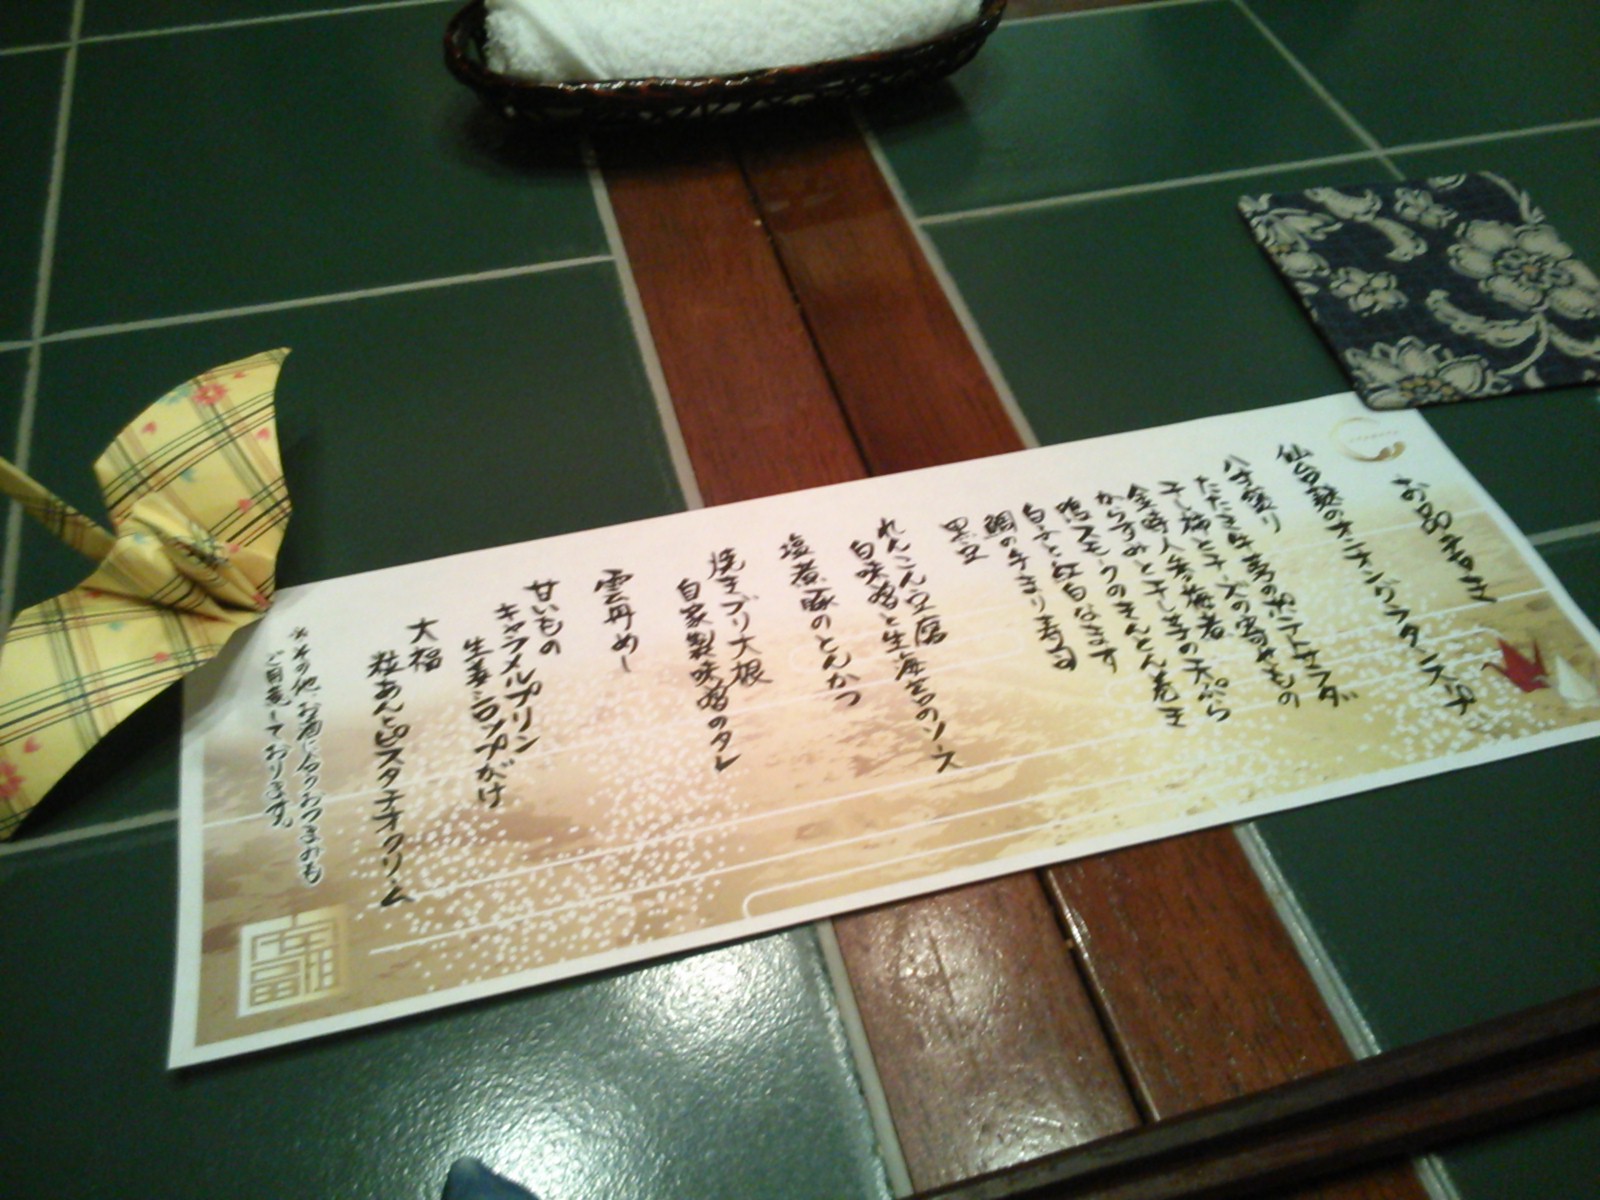 お品書き
仙台麩のオニオングラタンスープ
八寸盛り
たたき牛蒡のポテトサラダ
干し柿とチーズの寄せもの
金時人参梅煮
からすみと干し芋の天ぷら
鴨スモークのきんとん巻き
白子と紅白なます
鯛の手まり寿司
黒豆
れんこん豆腐
白味噌と生海苔のソース
塩煮豚のとんかつ
焼きブリ大根
自家製味噌のタレ
雲丹めし
甘いもの
キャラメルプリン
生姜シロップがけ
大福
粒あんとピスタチオクリーム
※その他、お酒に合うおつまみも
ご用意しております。